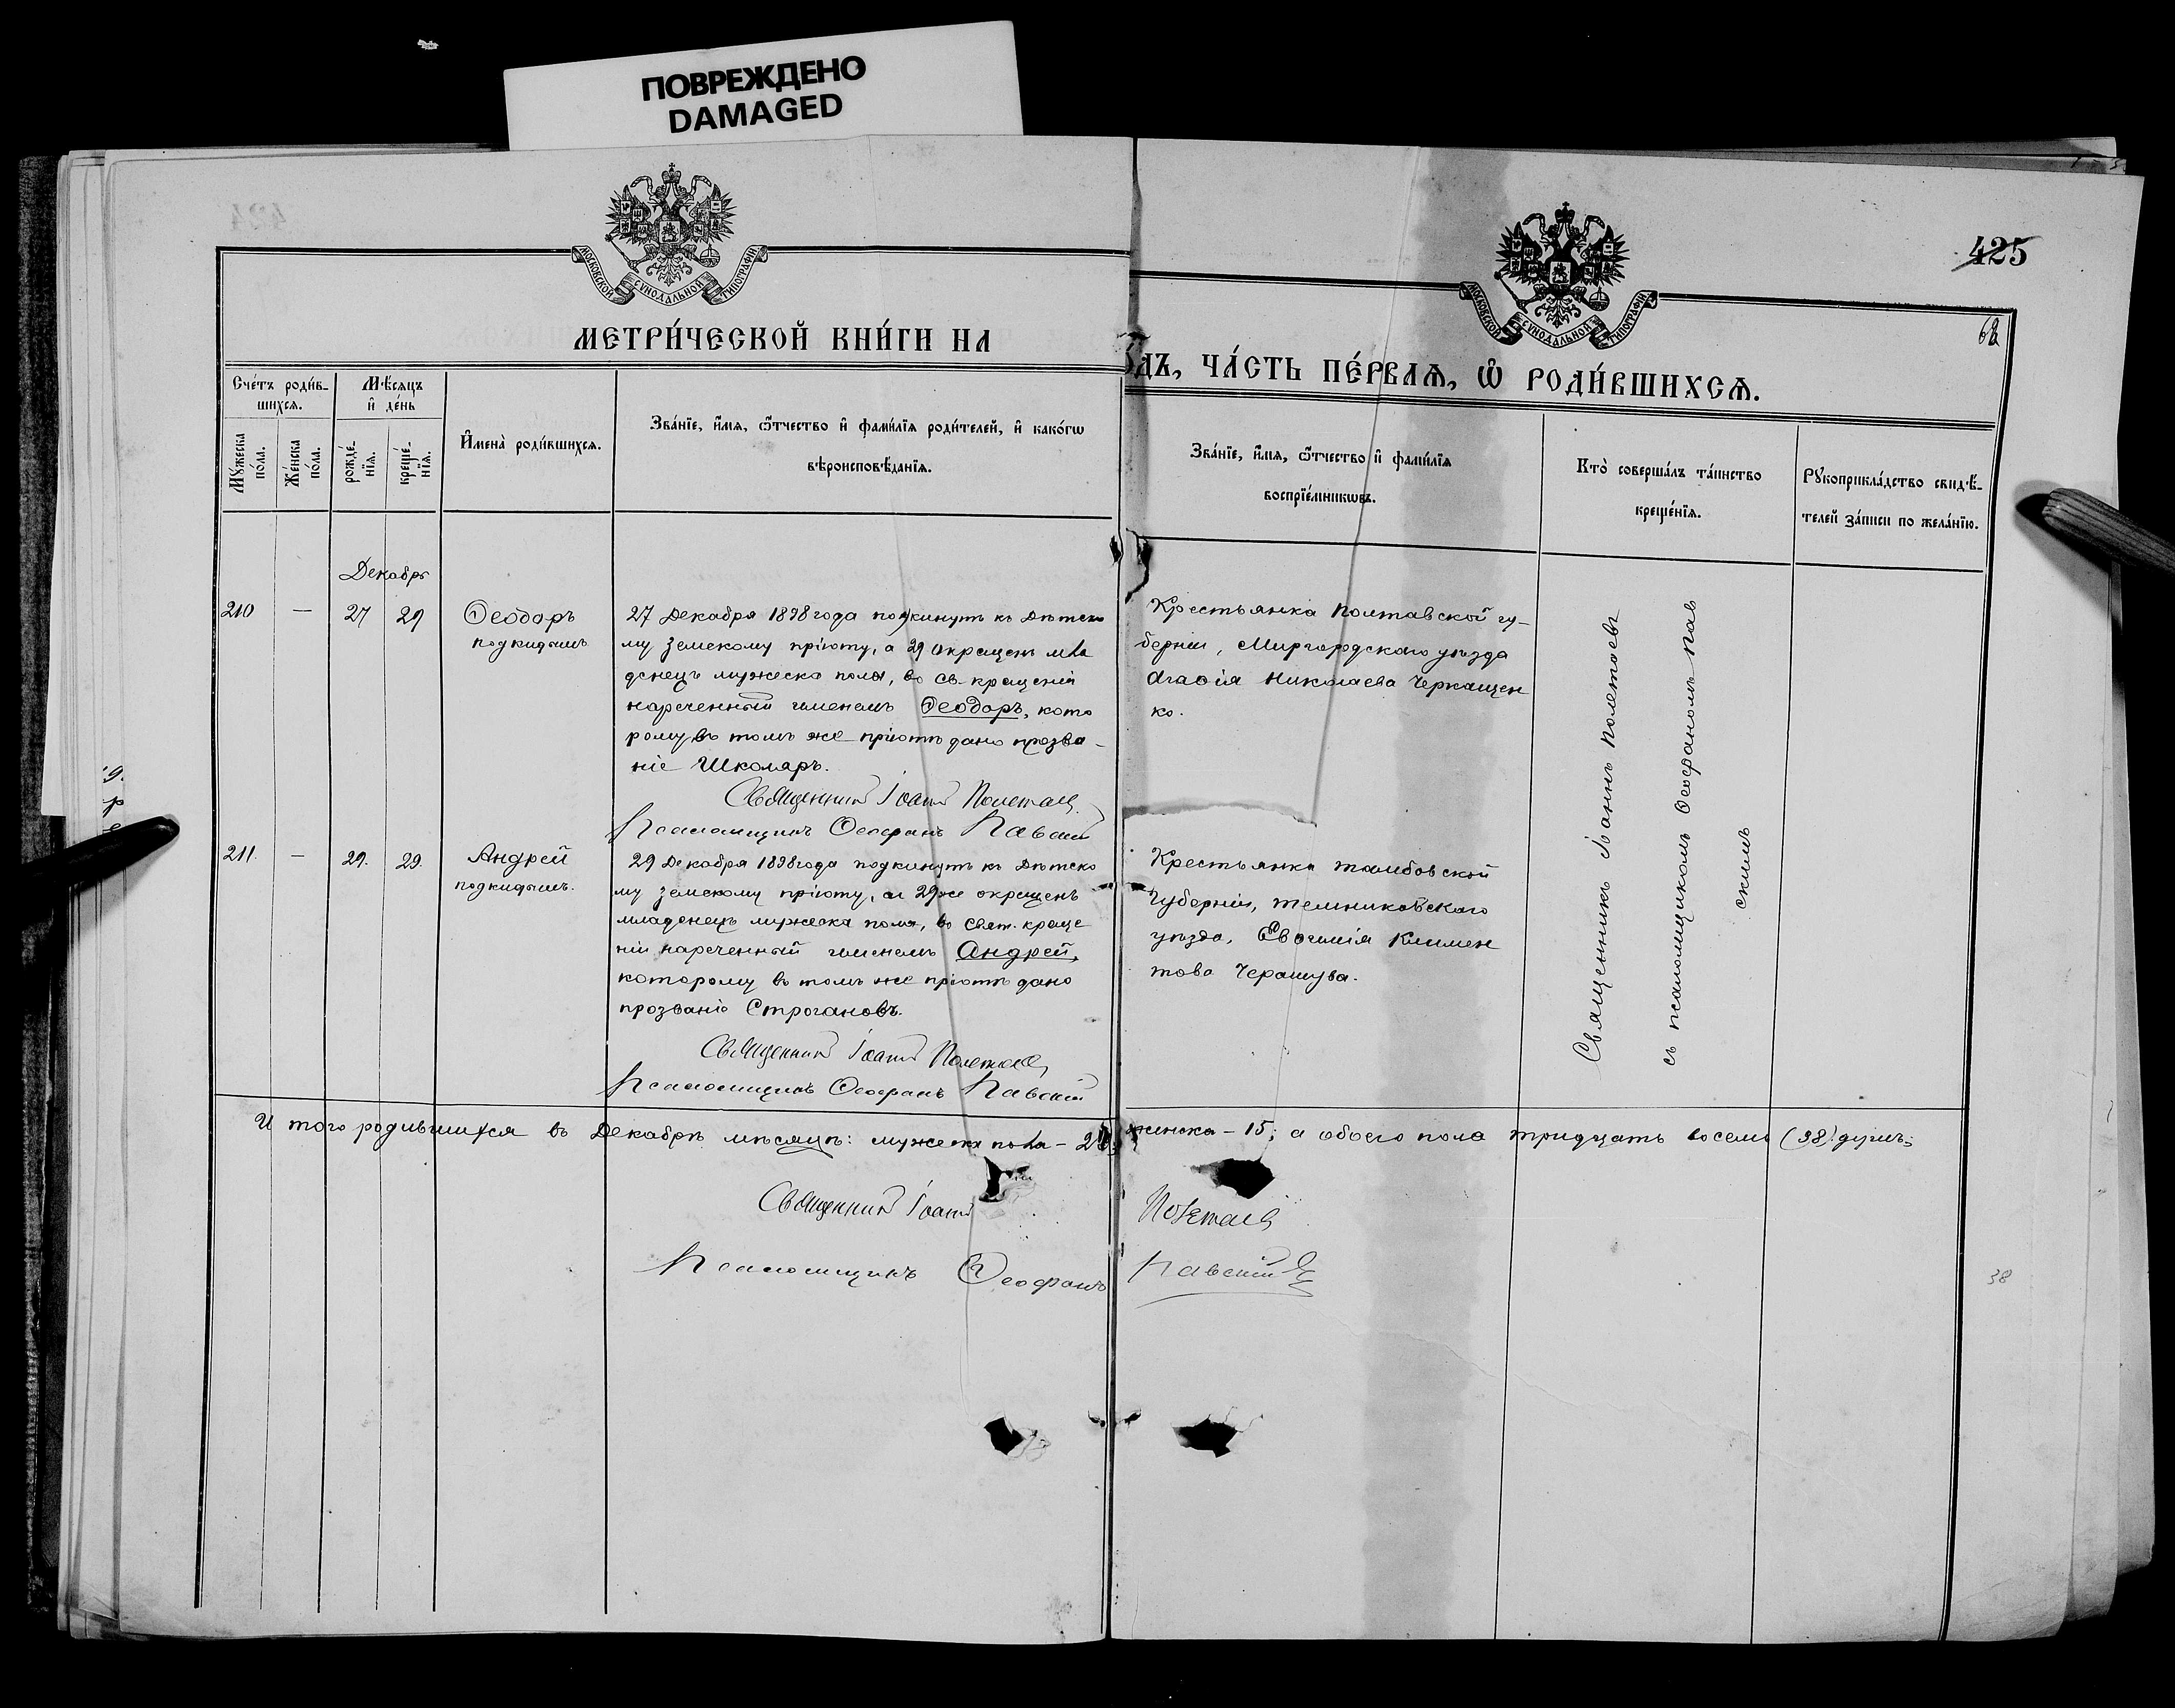 ПОВРЕЖДЕНО
DAMAGED
425
62
МОСКОВСКОЙ СѴНОДАЛЬНОЙ ТИПОГРАФІИ
МОСКОВСКОЙ СѴНОДАЛЬНОЙ ТИПОГРАФІИ
МЕТРИ́ЧЕСКОЙ КНИ́ГИ НА
ДЪ, ЧА́СТЬ ПЕ́РВАѦ, Ѡ҆ РОДИ́ВШИХСѦ.
Сче́тъ роди́в-
шихся.
Мѣ́сяцъ
и҆ де́нь
Мꙋжеска по́ла.
Же́нска по́ла.
рожде́-
нїя.
креще́-
нїя.
И҆мена̀ роди́вшихся.
Зва́нїе, и҆́мя, ѻ҆́тчество и҆ фами́лїя роди́телей, и҆ како́гѡ
вѣроисповѣ́данїя.
Зва́нїе, и҆́мя, ѻ҆́тчество и҆ фами́лїя
воспрїе́мникѡвъ.
Кто̀ соверша́лъ та́инство
креще́нїя.
Рꙋкоприкла́дство свидѣ́-
телей за́писи по жела́нїю.
Декабрь
210 — 27 29
Ѳеодоръ
подкидышъ
27 Декабря 1898 года подкинутъ къ Дѣтско
му земскому пріюту, а 29 окрещенъ мла
денецъ мужеска пола, во св. крещеніи
нареченный именемъ Ѳеодоръ, кото
рому въ томъ же пріютѣ дано прозва-
ніе Школяръ.
Священникъ Іоаннъ Полетаевъ
Псаломщикъ Ѳеофанъ Павскій
Крестьянка Полтавской гу-
берніи, Миргородскаго уѣзда
Агаѳія Николаева Черкащен
ко.
211. — 29. 29.
Андрей
подкидышъ.
29 Декабря 1898 года подкинутъ къ Дѣтско
му земскому пріюту, а 29же окрещенъ
младенецъ мужеска пола, во свят. креще
ніи нареченный именемъ Андрей,
которому въ томъ же пріютѣ дано
прозваніе Строгановъ.
Священникъ Іоаннъ Полетаевъ
Псаломщикъ Ѳеофанъ Павскій
Крестьянка Тамбовской
губерніи, Темниковскаго
уѣзда, Евѳимія Климен
това
Священникъ Іоаннъ Полетаевъ
съ псаломщикомъ Ѳеофаномъ Пав
скимъ
И того родившихся въ Декабрѣ мѣсяцѣ: мужеска пола - женска - 15; а обоего пола тридцать восемь (38) душъ.
Священникъ Іоаннъ Полетаевъ
Псаломщикъ Ѳеофанъ Павскій
38